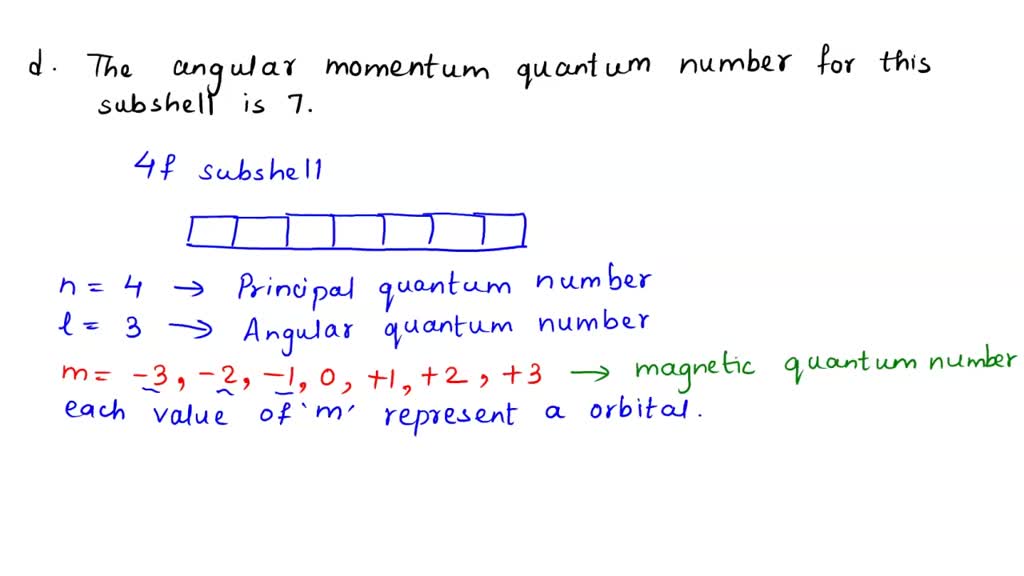 d. The angular momentum quantum number for this
subshell is 7.
4f subshell
n = 4 → Principal quantum number
l = 3 → Angular quantum number
m = -3, -2, -1, 0, +1, +2, +3 → magnetic quantum number
each value of 'm' represent a orbital.